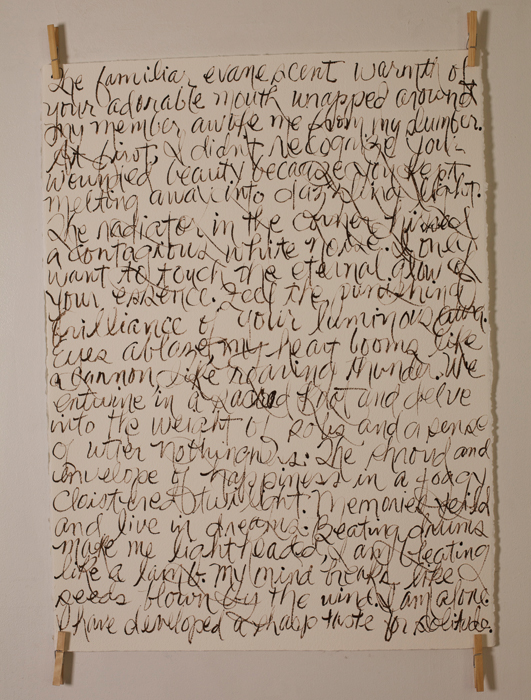 The familiar evanescent warmth of
your adorable mouth wrapped around
my member awoke me from my slumber.
At first, I didn't recognize your
wounded beauty because you kept
melting away into dazzling light.
The radiator in the corner hissed
a contagious white noise. I only
want to touch the eternal glow of
your essence. Feel the punishing
brilliance of your luminous aura.
Eyes ablaze, my heart booms like
a cannon like roaring thunder. We
entwine in a sacred knot and delve
into the weight of sobs and a sense
of utter nothingness. The shroud and
envelope of happiness in a foggy
cloistered twilight. Memories
and live in dreams. Beating drums
make me lightheaded, I am bleating
like a lamb. My mind breaks like
seeds blown by the wind. I am alone.
I have developed a sharp taste for solitude.